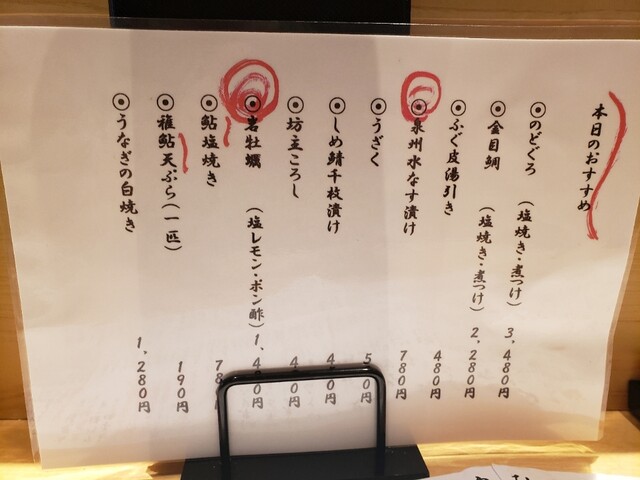 本日のおすすめ
◉のどぐろ（塩焼き・煮つけ）3,480円
◉金目鯛（塩焼き・煮つけ）2,280円
◉ふぐ皮湯引き 480円
◉泉州水なす漬け 780円
◉うざく
◉しめ鯖千枚漬け
◉坊主ころし
◉岩牡蠣（塩レモン・ポン酢）
◉鮎塩焼き
◉稚鮎天ぷら（一匹）190円
◉うなぎの白焼き 1,280円